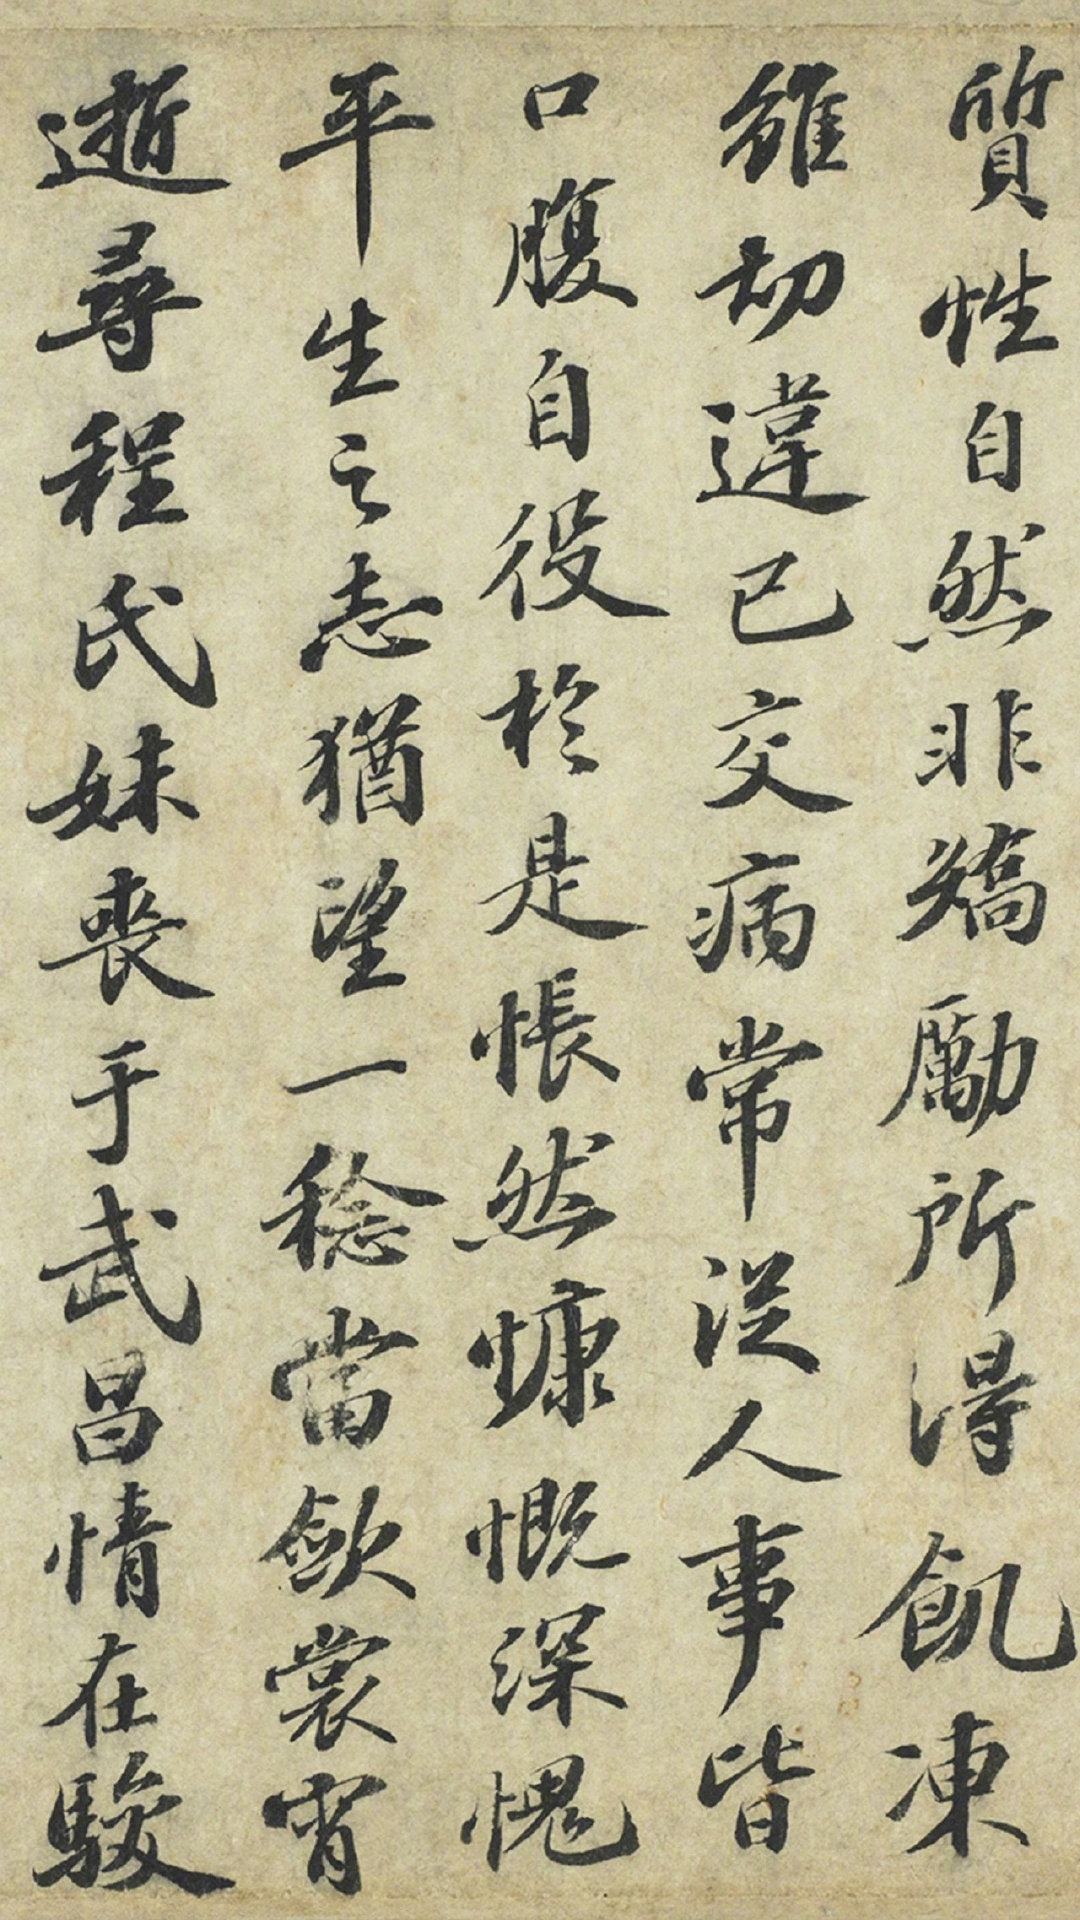 質性自然非矯勵所得飢凍
雖切違己交病常從人事皆
口腹自役於是悵然慷慨深愧
平生之志猶望一稔當斂裳宵
逝尋程氏妹喪于武昌情在駿